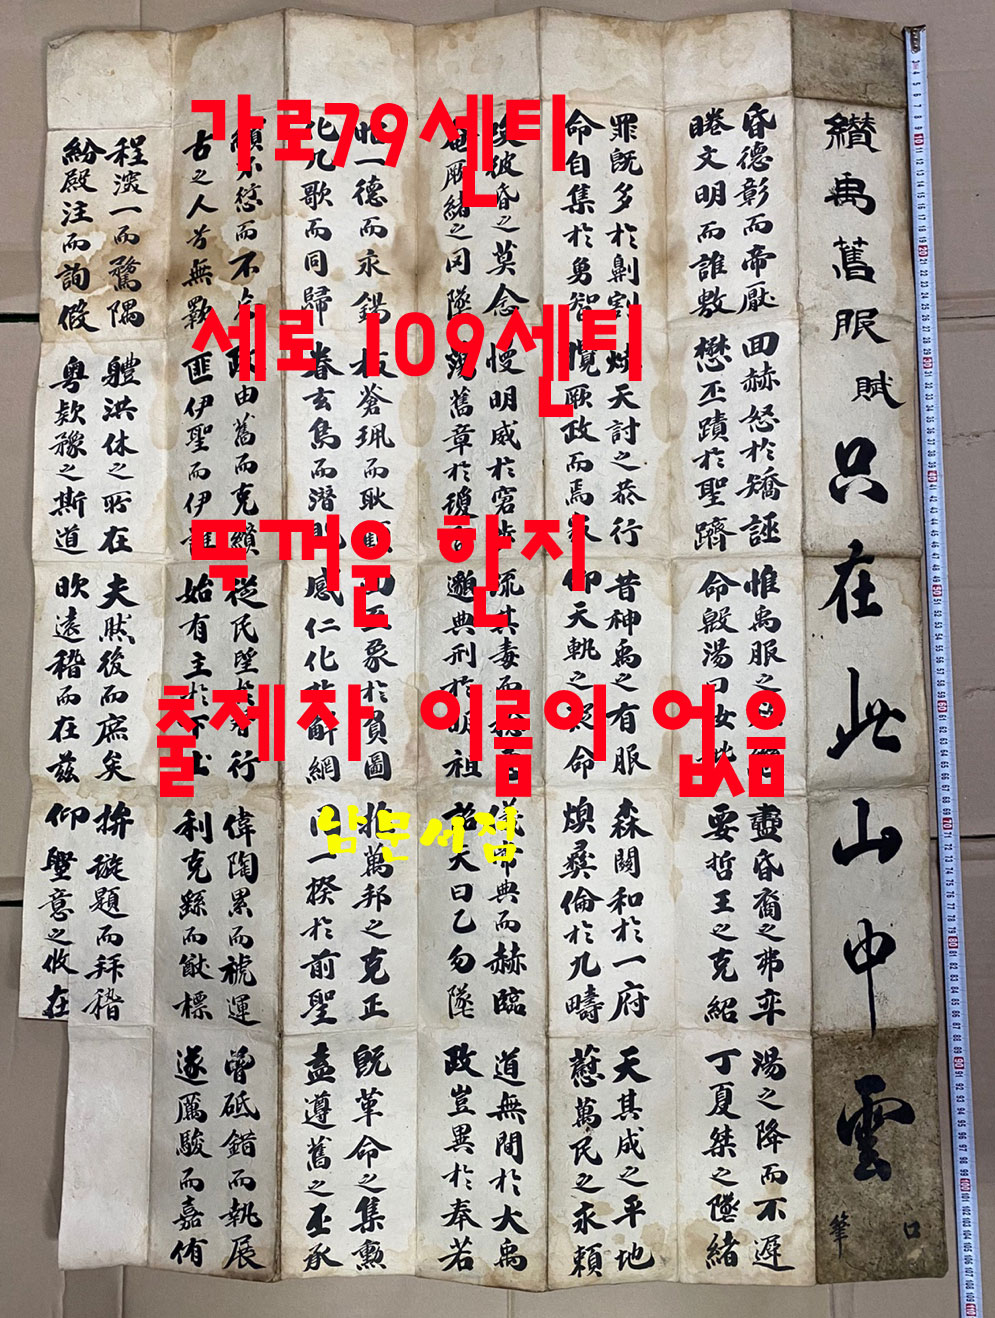 가로79센티
세로 109센티
무꺼운 한지
출제자 이름이 없음
남문서점
纉禹舊服賦 只在此山中雲
口筆
昏德彰而帝厭 回赫怒於矯誣 惟禹服之 蠱昏裔之弗率 湯之降而不遲
睠文明而誰敷 懋丕蹟於聖躋 命殷湯曰女 要哲王之克紹 丁夏桀之墜緒
罪旣多於劓割 天討之恭行 昔神禹之有服 森關和於一府 天其成之平地
命自集於勇智 慨厥政而焉 仰天軌之命 煥彛倫於九疇 慰萬民之永賴
彼昏之莫念 慢明威於 流其毒而 帝典而赫臨 道無間於大禹
厥緒之同墜 蕩舊章於瓊 邈典刑於明祖 大曰乙勿墜 政豈異於奉若
一德而永錫 蒼珮而耿 象於負圖 萬邦之克正 旣革命之集勳
九歌而同歸 眷玄鳥而潛 感仁化解網 一揆於前聖 盍遵舊之丕承
而不 由舊而克纘 從民望行 偉陶累而號運 曾砥錯而執展
古之人無斁 匪伊聖而伊 始有主於下土 利克繇而猷標 遂厲駿而嘉侑
程淡一而騖隅 軆洪休之所在 夫然後而庶矣 拚璇題而拜稽
紛殿注而詢假 粤欵豫之斯道 遠稽而在玆 仰聖意之攸在